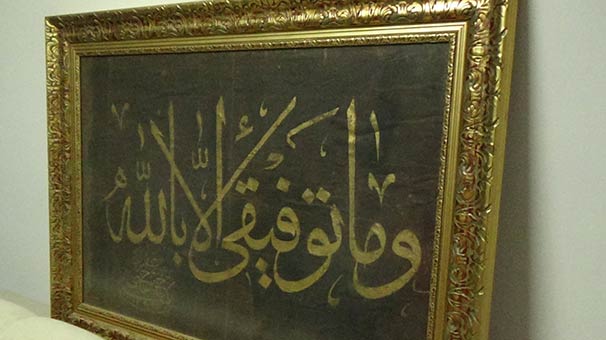 وما توفيقى الا بالله